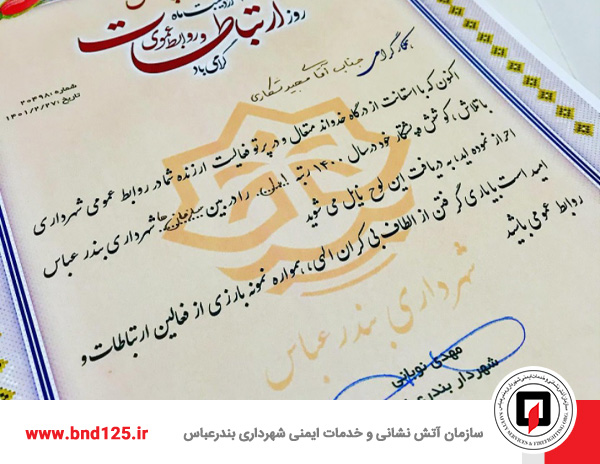 اردیبهشت ماه
روز ارتباطات و روابط عمومی
گرامی باد
شماره: ۲۰۳۹۸
تاریخ: ۱۴۰۱/۲/۲۷
همکار گرامی جناب آقای مجید شکاری
اکنون که با استعانت از درگاه خداوند متعال و در پرتو فعالیت ارزنده شما در روابط عمومی شهرداری
با تلاش، کوشش و پشتکار خود در سال ۱۴۰۰ رتبه را در بین سازمان ها شهرداری بندر عباس
احراز نموده اید، به دریافت این لوح نایل می شوید
امید است با یاری گرفتن از الطاف بی کران الهی، همواره نمونه بارزی از فعالین ارتباطات و
روابط عمومی باشید
شهرداری بندرعباس
مهدی نوبانی
شهردار بندر
سازمان آتش نشانی و خدمات ایمنی شهرداری بندرعباس
www.bnd125.ir